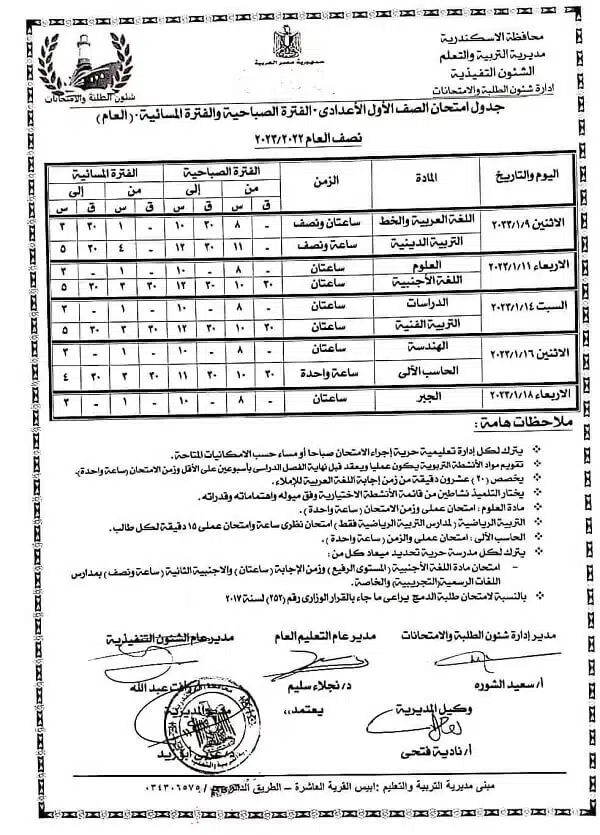 محافظة الاسكندرية
مديرية التربية والتعلم
الشئون التنفيذية
إدارة شئون الطلبة والامتحانات
جمهورية مصر العربية
شئون الطلبة والامتحانات
جدول امتحان الصف الأول الأعدادى - الفترة الصباحية والفترة المسائية - (العام)
نصف العام ٢٠٢٣/٢٠٢٢
اليوم والتاريخ المادة الزمن الفترة الصباحية الفترة المسائية
من إلى من إلى
ق س ق س ق س ق س
الاثنين ٢٠٢٣/١/٩ اللغة العربية والخط ساعتان ونصف - ٨ ٣٠ ١٠ - ١ ٣٠ ٣
التربية الدينية ساعة ونصف - ١١ ٣٠ ١٢ - ٤ ٣٠ ٥
الاربعاء ٢٠٢٣/١/١١ العلوم ساعتان - ٨ - ١٠ - ١ - ٣
اللغة الأجنبية ساعتان ٣٠ ١٠ ٣٠ ١٢ ٣٠ ٣ ٣٠ ٥
السبت ٢٠٢٣/١/١٤ الدراسات ساعتان - ٨ - ١٠ - ١ - ٣
التربية الفنية ساعتان ٣٠ ١٠ ٣٠ ١٢ ٣٠ ٣ ٣٠ ٥
الاثنين ٢٠٢٣/١/١٦ الهندسة ساعتان - ٨ - ١٠ - ١ - ٣
الحاسب الألى ساعة واحدة ٣٠ ١٠ ٣٠ ١١ ٣٠ ٣ ٣٠ ٤
الاربعاء ٢٠٢٣/١/١٨ الجبر ساعتان - ٨ - ١٠ - ١ - ٣
ملاحظات هامة :
يترك لكل إدارة تعليمية حرية إجراء الامتحان صباحا أو مساء حسب الامكانيات المتاحة.
تقويم مواد الأنشطة التربوية يكون عمليا ويعقد قبل نهاية الفصل الدراسى بأسبوعين على الأقل وزمن الامتحان (ساعة واحدة).
يخصص (٢٠) عشرون دقيقة من زمن إجابة اللغة العربية للإملاء.
يختار التلميذ نشاطين من قائمة الأنشطة الاختيارية وفق ميوله واهتماماته وقدراته.
مادة العلوم : امتحان عملى وزمن الامتحان (ساعة واحدة).
التربية الرياضية ( لمدارس التربية الرياضية فقط) امتحان نظرى ساعة وامتحان عملى ١٥ دقيقة لكل طالب.
الحاسب الألى : امتحان عملى والزمن (ساعة واحدة).
يترك لكل مدرسة حرية تحديد ميعاد كل من :
- امتحان مادة اللغة الأجنبية (المستوى الرفيع) وزمن الإجابة (ساعتان) والاجنبية الثانية (ساعة ونصف) بمدارس
اللغات الرسمية(التجريبية) والخاصة.
بالنسبة لامتحان طلبة الدمج يراعى ما جاء بالقرار الوزارى رقم (٢٥٢) لسنة ٢٠١٧
مدير إدارة شئون الطلبة والامتحانات مدير عام التعليم العام مدير عام الشئون التنفيذية
أ/ سعيد الشوره د/ نجلاء سليم عبد الله
وكيل المديرية يعتمد،، المديرية
أ/ نادية فتحى
مبنى مديرية التربية والتعليم : أبيس القرية العاشرة - الطريق ٠٣٤٣٠٦٥٧٥